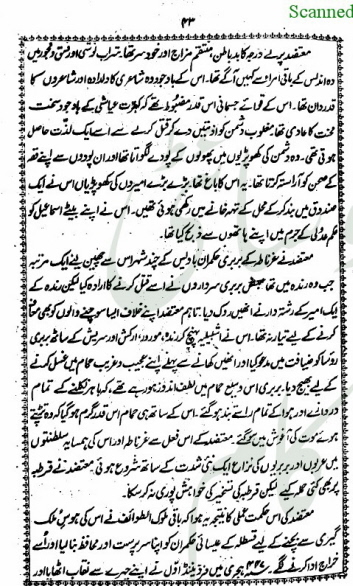 Scanned
۲۳
معتضد پرلے درجہ کا بد باطن منتقم مزاج اور خود سر تھا۔ شراب نوشی اور فسق و فجور میں
وہ اندلس کے باقی امراء سے کہیں آگے تھا۔ اس کے باوجود وہ شاعری کا دلدادہ اور شاعروں کا
قدردان تھا۔ اس کے قوائے جسمانی اس قدر مضبوط تھے کہ کثرت عیاشی کے باوجود سخت
محنت کا عادی تھا۔ مغلوب دشمن کو اذیتیں دے کر قتل کرنے سے اسے ایک لذت حاصل
ہوتی تھی۔ وہ دشمن کی کھوپڑیوں میں پھولوں کے پودے لگواتا تھا اور ان پودوں سے اپنے قصر
کے صحن کو آراستہ کرتا تھا۔ یہ اس کا باغ تھا۔ بڑے بڑے امیروں کی کھوپڑیاں اس نے ایک
صندوق میں بند کر کے محل کے تہہ خانے میں رکھی ہوئی تھیں۔ اس نے اپنے بیٹے اسماعیل کو
حکم عدولی کے جرم میں اپنے ہاتھوں سے ذبح کیا تھا۔
معتضد نے غرناطہ کے بربری حکمران بادیس کے چند شہر اس سے چھین لیے ایک مرتبہ
جب وہ رندہ میں تھا بعض بربری سرداروں نے اسے قتل کرنے کا ارادہ کیا لیکن رندہ کے
ایک امیر کے رشتہ دار نے انہیں روک دیا۔ تاہم معتضد اپنے خلاف ایسا سوچنے والوں کو بھی معاف
کرنے کے لیے تیار نہ تھا۔ اس نے اشبیلیہ پہنچ کر رندہ، مورور، ارکش اور سریش کے ساٹھ بربری
روسا کو ضیافت میں مدعو کیا اور انہیں کھانے سے پہلے اپنے عجیب و غریب حمام میں غسل کرنے
کے لیے بھیج دیا۔ بربری اس وسیع حمام میں لطف اندوز ہو رہے تھے، کہ باہر نکلنے کے تمام
دروازے اور ہوا کے تمام راستے بند ہو گئے۔ اس کے ساتھ ہی حمام اس قدر گرم ہو گیا کہ وہ تڑپتے
ہوئے موت کی آغوش میں پہنچ گئے۔ معتضد کے اس فعل سے غرناطہ اور اس کی ہمسایہ سلطنتوں
میں عربوں اور بربریوں کی نزاع ایک نئی شدت کے ساتھ شروع ہوئی معتضد نے قرطبہ
پر بھی کئی حملے کیے لیکن قرطبہ کی تسخیر کی خواہش پوری نہ کر سکا۔
معتضد کی اس حکمت عملی کا نتیجہ یہ ہوا کہ باقی ملوک الطوائف نے اس کی ہوس ملک
گیری سے بچنے کے لیے قسطلہ کے عیسائی حکمران کو اپنا سرپرست اور محافظ بنا لیا اور اسے
خراج ادا کرنے لگے۔ ۴۴۷ ہجری میں فرڈیننڈ اول نے اپنے چہرے سے نقاب اٹھایا اور